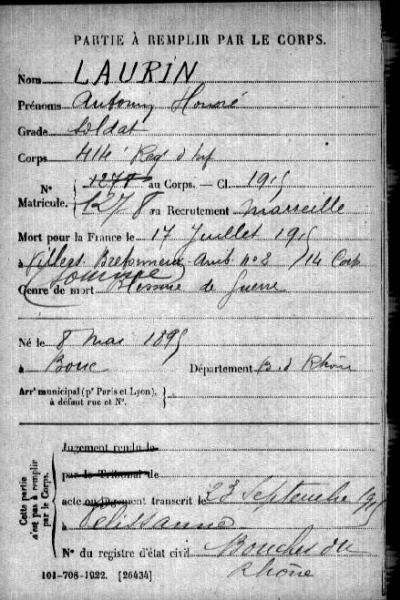 PARTIE À REMPLIR PAR LE CORPS.
Nom LAURIN
Prénoms Antoine Honoré
Grade Soldat
Corps 414 Reg d'Inf
N° 1278 au Corps. — Cl. 1915
Matricule. 1278 au Recrutement Marseille
Mort pour la France le 17 Juillet 1915
à Amb. n° 2 /14 Corps
Somme
Genre de mort Blessure de Guerre
Né le 8 Mai 1895
à Bouc Département B. d Rhône
Arrt municipal (pr Paris et Lyon),
à défaut rue et N°.
Cette partie
n'est pas à remplir
par le Corps.
Jugement rendu le
par le Tribunal de
acte ou jugement transcrit le 23 Septembre 1915
à Pélissanne
N° du registre d'état civil Bouches du
Rhône
101-708-1922. [26434]